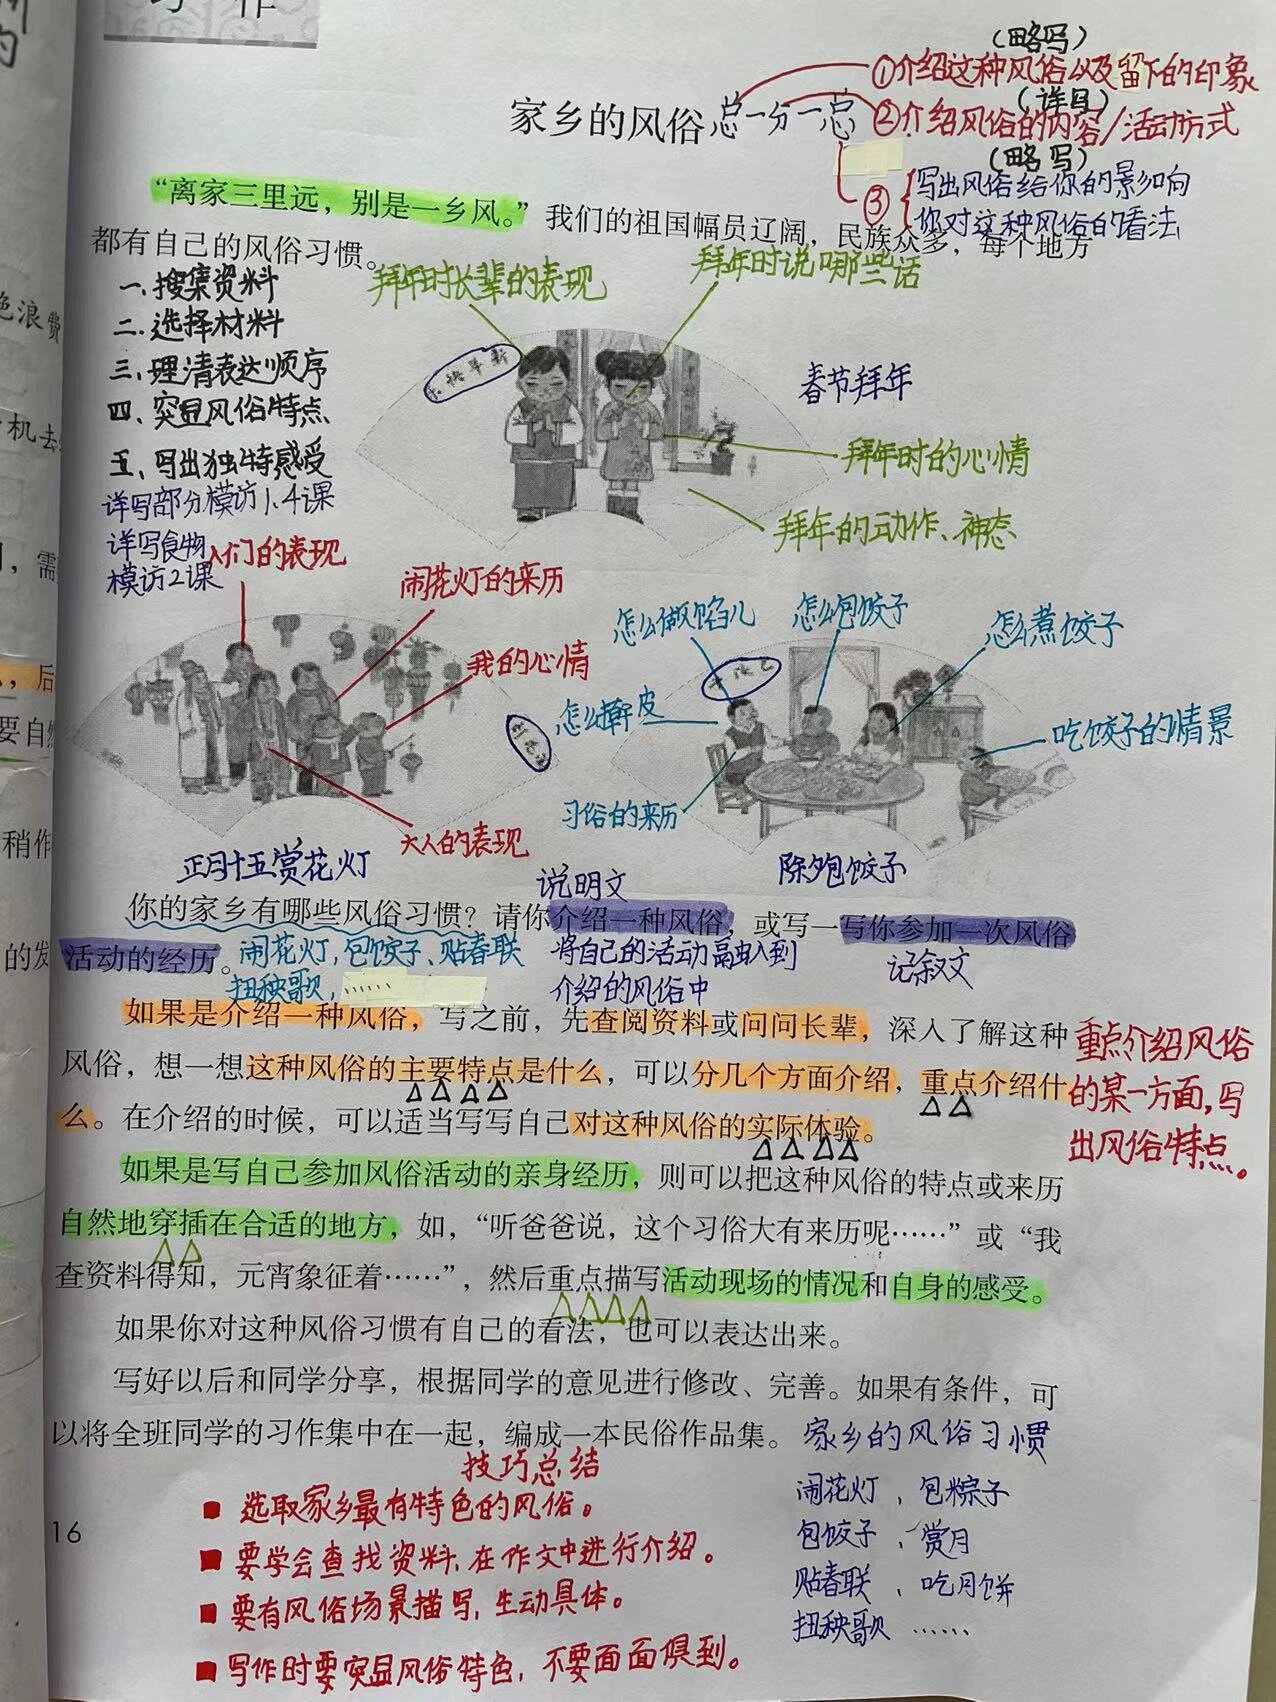 习作
(略写)
①介绍这种风俗以及留下的印象
家乡的风俗 总一分一总
(详写)
②介绍风俗的内容/活动方式
(略写)
③写出风俗给你的影响
你对这种风俗的看法
“离家三里远，别是一乡风。”我们的祖国幅员辽阔，民族众多，每个地方
都有自己的风俗习惯。
一、搜集资料
二、选择材料
三、理清表达顺序
四、突显风俗特点
五、写出独特感受
详写部分模访1、4课
详写食物
模访2课
拜年时长辈的表现
拜年时说哪些话
春节拜年
拜年时的心情
拜年的动作、神态
人们的表现
闹花灯的来历
我的心情
大人的表现
正月十五赏花灯
怎么做馅儿
怎么包饺子
怎么煮饺子
怎么擀皮
吃饺子的情景
习俗的来历
除夕包饺子
说明文
你的家乡有哪些风俗习惯？请你介绍一种风俗，或写一写你参加一次风俗
活动的经历。
闹花灯，包饺子、贴春联
扭秧歌，……
将自己的活动融入到
介绍的风俗中
记叙文
如果是介绍一种风俗，写之前，先查阅资料或问问长辈，深入了解这种
风俗，想一想这种风俗的主要特点是什么，可以分几个方面介绍，重点介绍什
么。在介绍的时候，可以适当写写自己对这种风俗的实际体验。
重点介绍风俗
的某一方面，写
出风俗特点。
如果是写自己参加风俗活动的亲身经历，则可以把这种风俗的特点或来历
自然地穿插在合适的地方，如，“听爸爸说，这个习俗大有来历呢……”或“我
查资料得知，元宵象征着……”，然后重点描写活动现场的情况和自身的感受。
如果你对这种风俗习惯有自己的看法，也可以表达出来。
写好以后和同学分享，根据同学的意见进行修改、完善。如果有条件，可
以将全班同学的习作集中在一起，编成一本民俗作品集。
家乡的风俗习惯
闹花灯、包粽子
包饺子、赏月
贴春联、吃月饼
扭秧歌……
技巧总结
■ 选取家乡最有特色的风俗。
■ 要学会查找资料，在作文中进行介绍。
■ 要有风俗场景描写，生动具体。
■ 写作时要突显风俗特色，不要面面俱到。
16